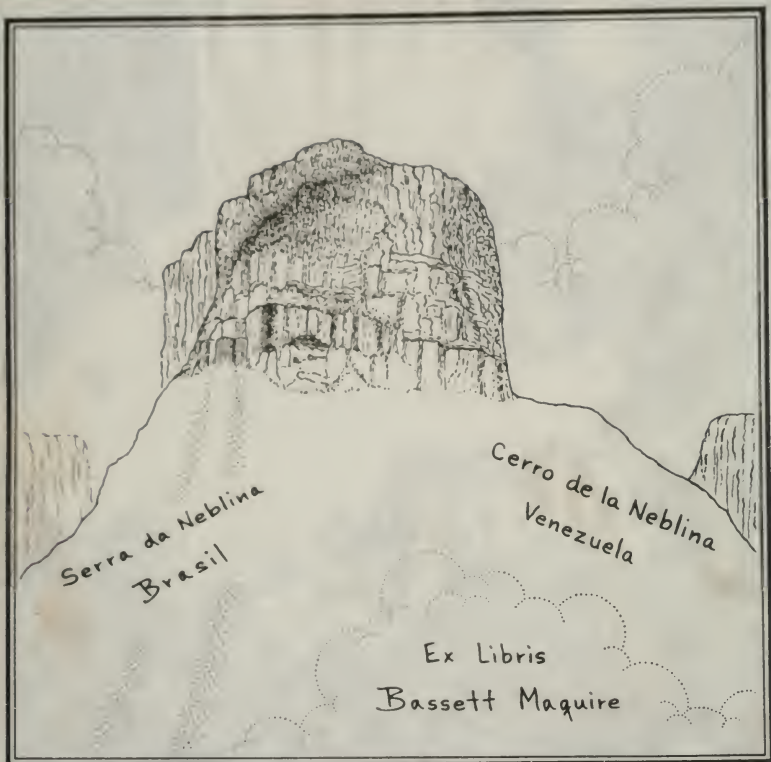 Serra da Neblina
Brasil
Cerro de la Neblina
Venezuela
Ex Libris
Bassett Maguire